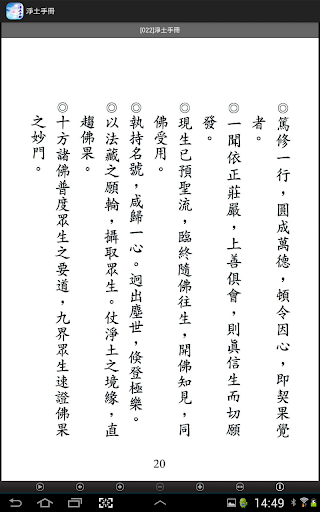 淨土手冊
[022]淨土手冊
◎篤修一行，圓成萬德，頓令因心，即契果覺
者。
◎一聞依正莊嚴，上善俱會，則真信生而切願
發。
◎現生已預聖流，臨終隨佛往生，開佛知見，同
佛受用。
◎執持名號，咸歸一心。迥出塵世，倏登極樂。
◎以法藏之願輪，攝取眾生。仗淨土之境緣，直
趨佛果。
◎十方諸佛普度眾生之要道，九界眾生速證佛果
之妙門。
20
14:49